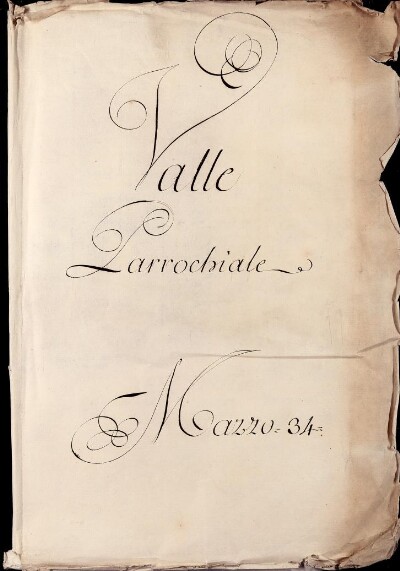 Valle
Parrochiale
Mazzo = 34 =